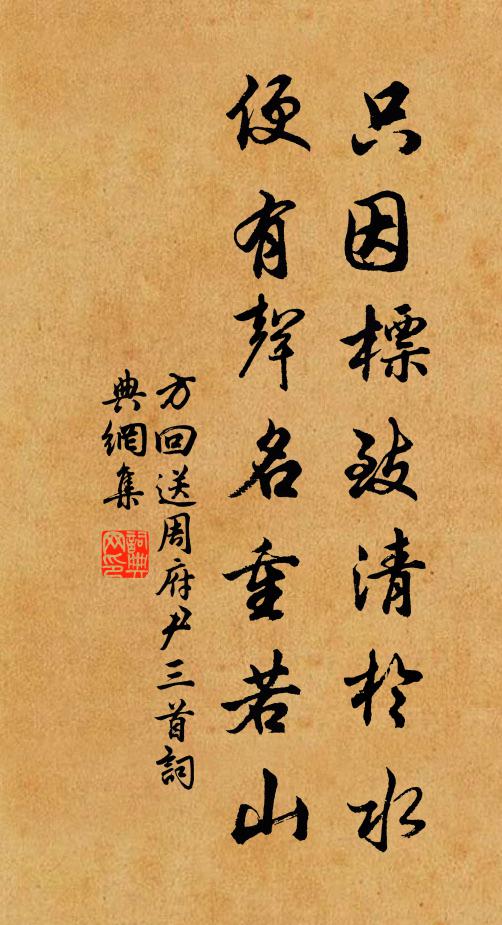 只因標致清於水
便有聲名重若山
方回送周府尹三首詞
典網集
詞典网印